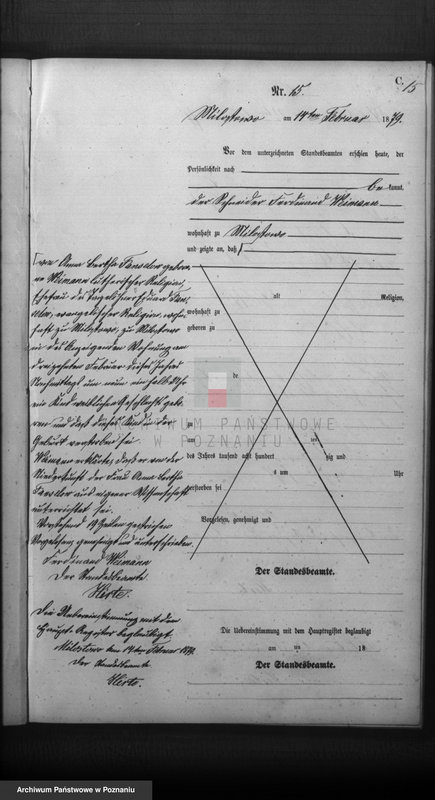 C.
15
Nr. 15.
Milostowo am 14ten Februar 1879.
Vor dem unterzeichneten Standesbeamten erschien heute, der
Persönlichkeit nach
be kannt,
der Schneider Ferdinand Weimann
wohnhaft zu Milostowo
und zeigte an, daß
von Anna Bertha Fansler gebore-
ne Weimann lutherischer Religion,
Ehefrau des Eduard Fan-
sler, evangelischer Religion, wohn-
haft zu Milostowo, zu Milostowo
in des Anzeigenden Wohnung am
dreizehnten Februar dieses Jahres
Nachmittags um neun ein halb Uhr
ein Kind weiblichen Geschlechts gebo-
ren und daß dieses Kind in der
Geburt verstorben sei
Weimann erklärte, daß er von der
Niederkunft der Frau Anna Bertha
Fansler aus eigener Wissenschaft
unterrichtet sei.
Vorstehend 19 Zeilen gestrichen
Vorgelesen genehmigt und unterschrieben
Ferdinand Weimann
Der Standesbeamte.
Herte.
Die Uebereinstimmung mit dem
Haupt-Register beglaubigt.
Milostowo den 14ten Februar 1879.
Der Standesbeamte
Herte.
alt Religion,
wohnhaft zu
geboren zu
de
zu
am ten
des Jahres tausend acht hundert zig und
um Uhr
verstorben sei
Vorgelesen, genehmigt und
Der Standesbeamte.
Die Uebereinstimmung mit dem Hauptregister beglaubigt
am ten 18
Der Standesbeamte.
ARCHIWUM PAŃSTWOWE
W POZNANIU
Archiwum Państwowe w Poznaniu